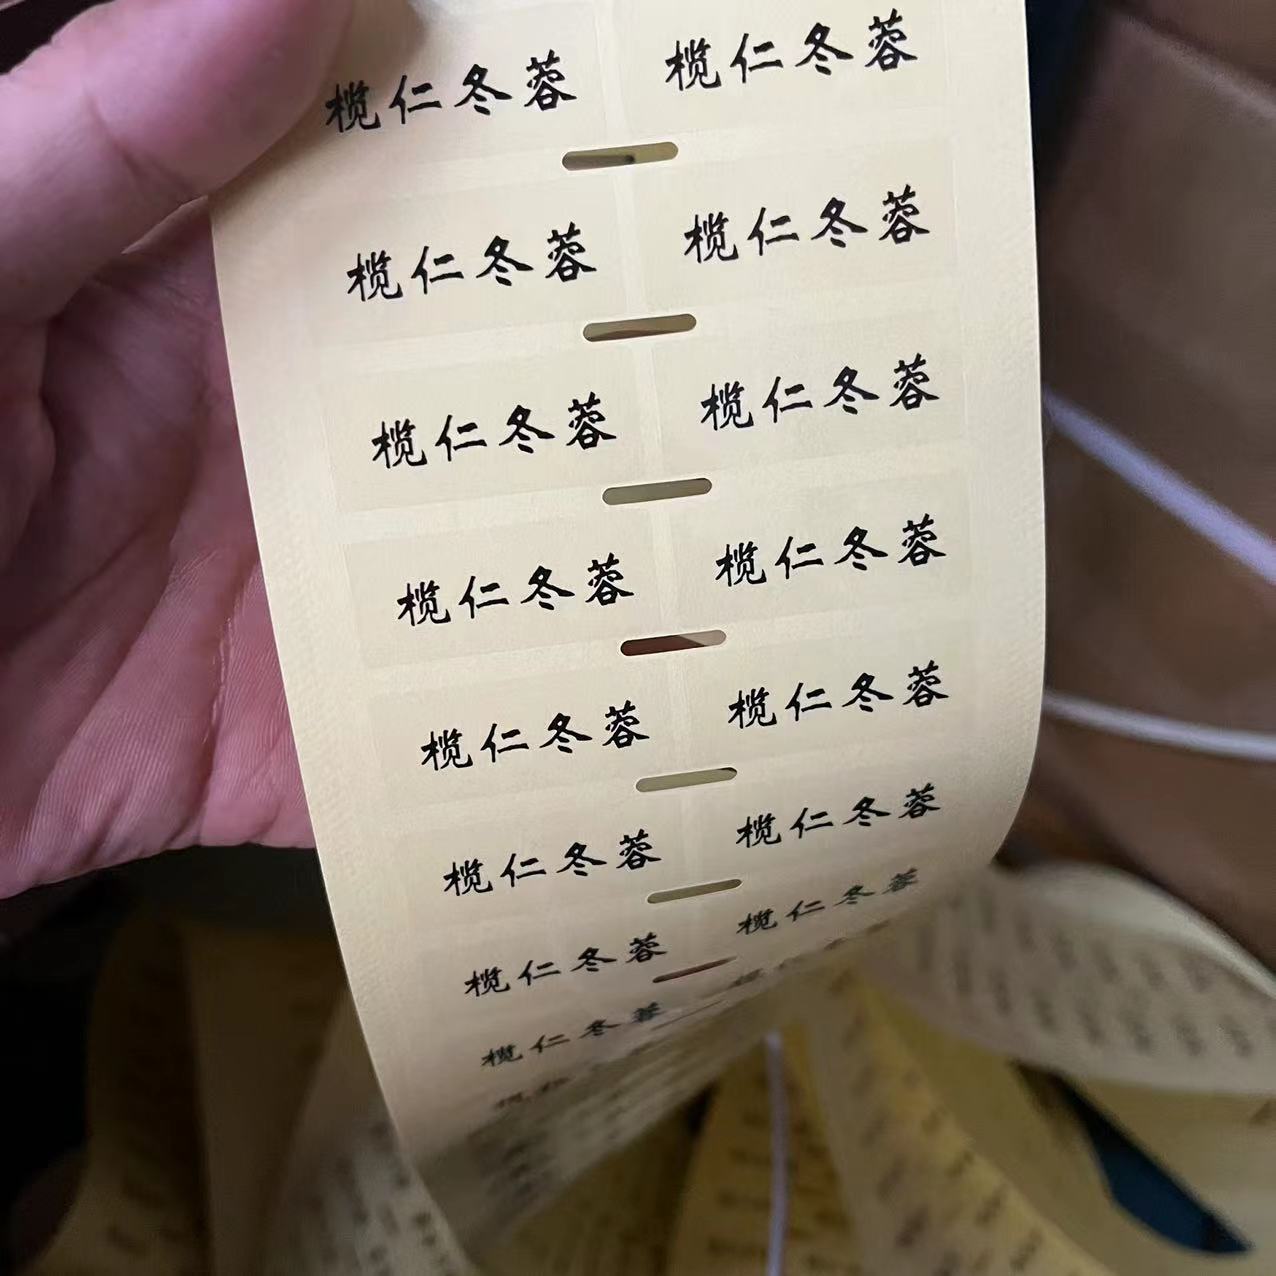 榄仁冬蓉 榄仁冬蓉
榄仁冬蓉 榄仁冬蓉
榄仁冬蓉 榄仁冬蓉
榄仁冬蓉 榄仁冬蓉
榄仁冬蓉 榄仁冬蓉
榄仁冬蓉 榄仁冬蓉
榄仁冬蓉 榄仁冬蓉
榄仁冬蓉